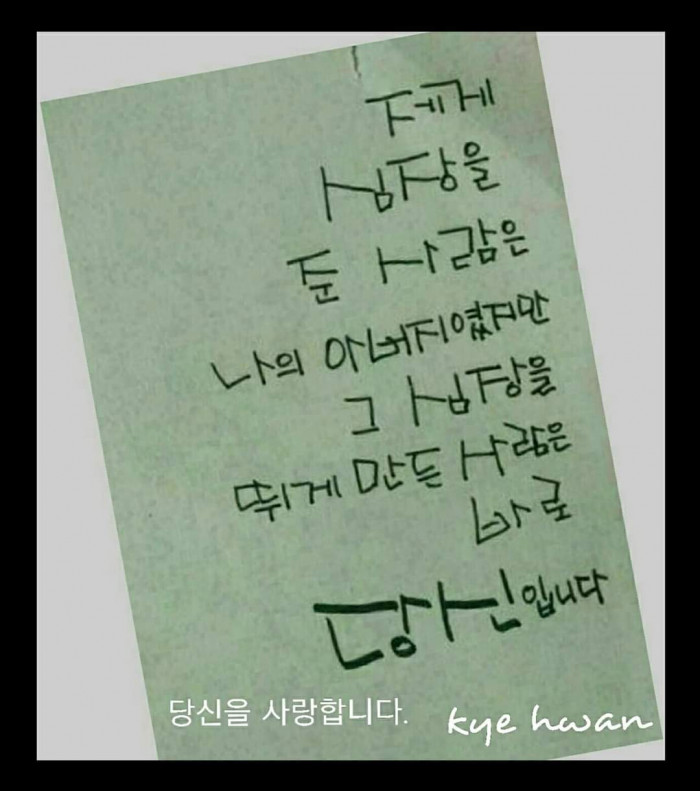 제게
심장을
준 사람은
나의 아버지였지만
그 심장을
뛰게 만든 사람은
바로
당신입니다
당신을 사랑합니다.
kye hwan